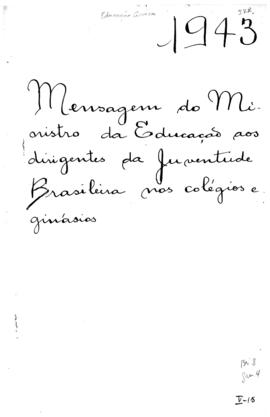 1943
Mensagem do Mi-
nistro da Educação aos
dirigentes da Juventude
Brasileira nos colégios e
ginásios
V-18